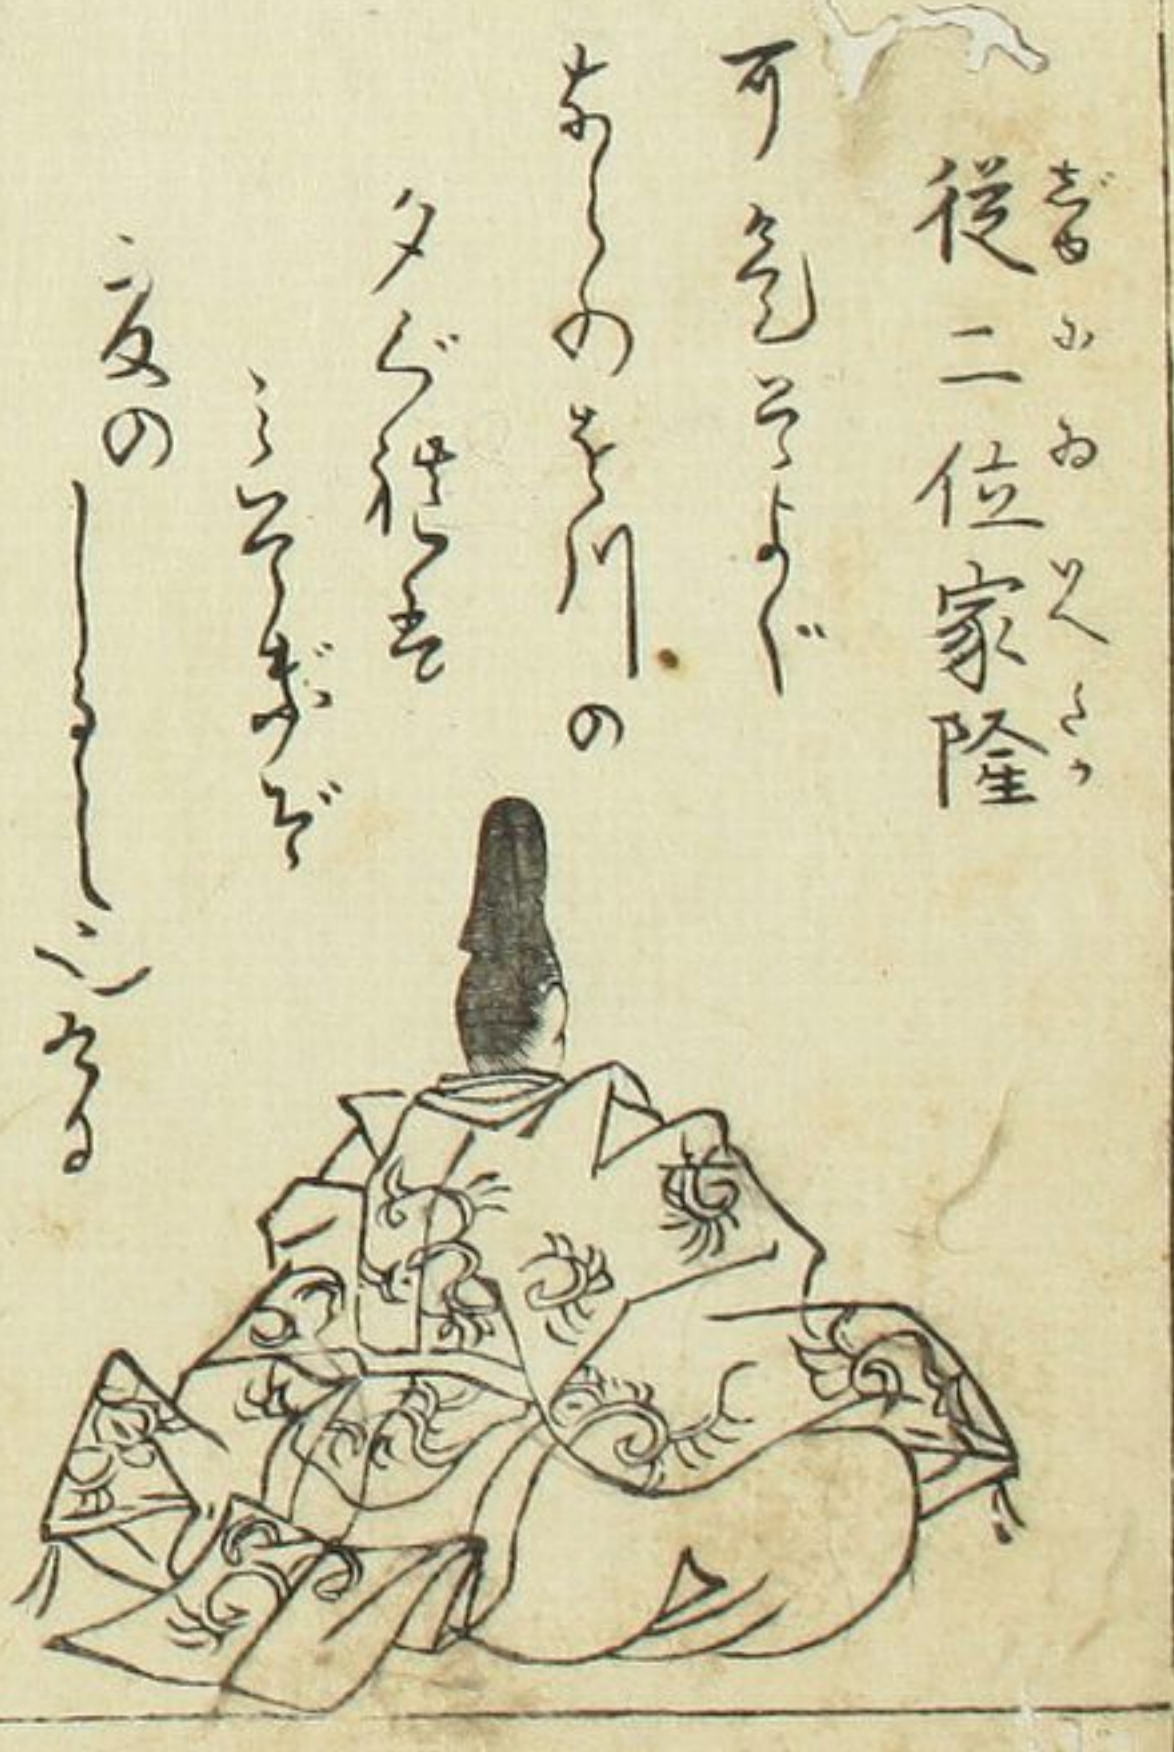 じゆにゐいへたか
従二位家隆
可ぜそよぐ
ならのを川の
夕ぐれは
みそぎぞ
夏のしるし
也ける